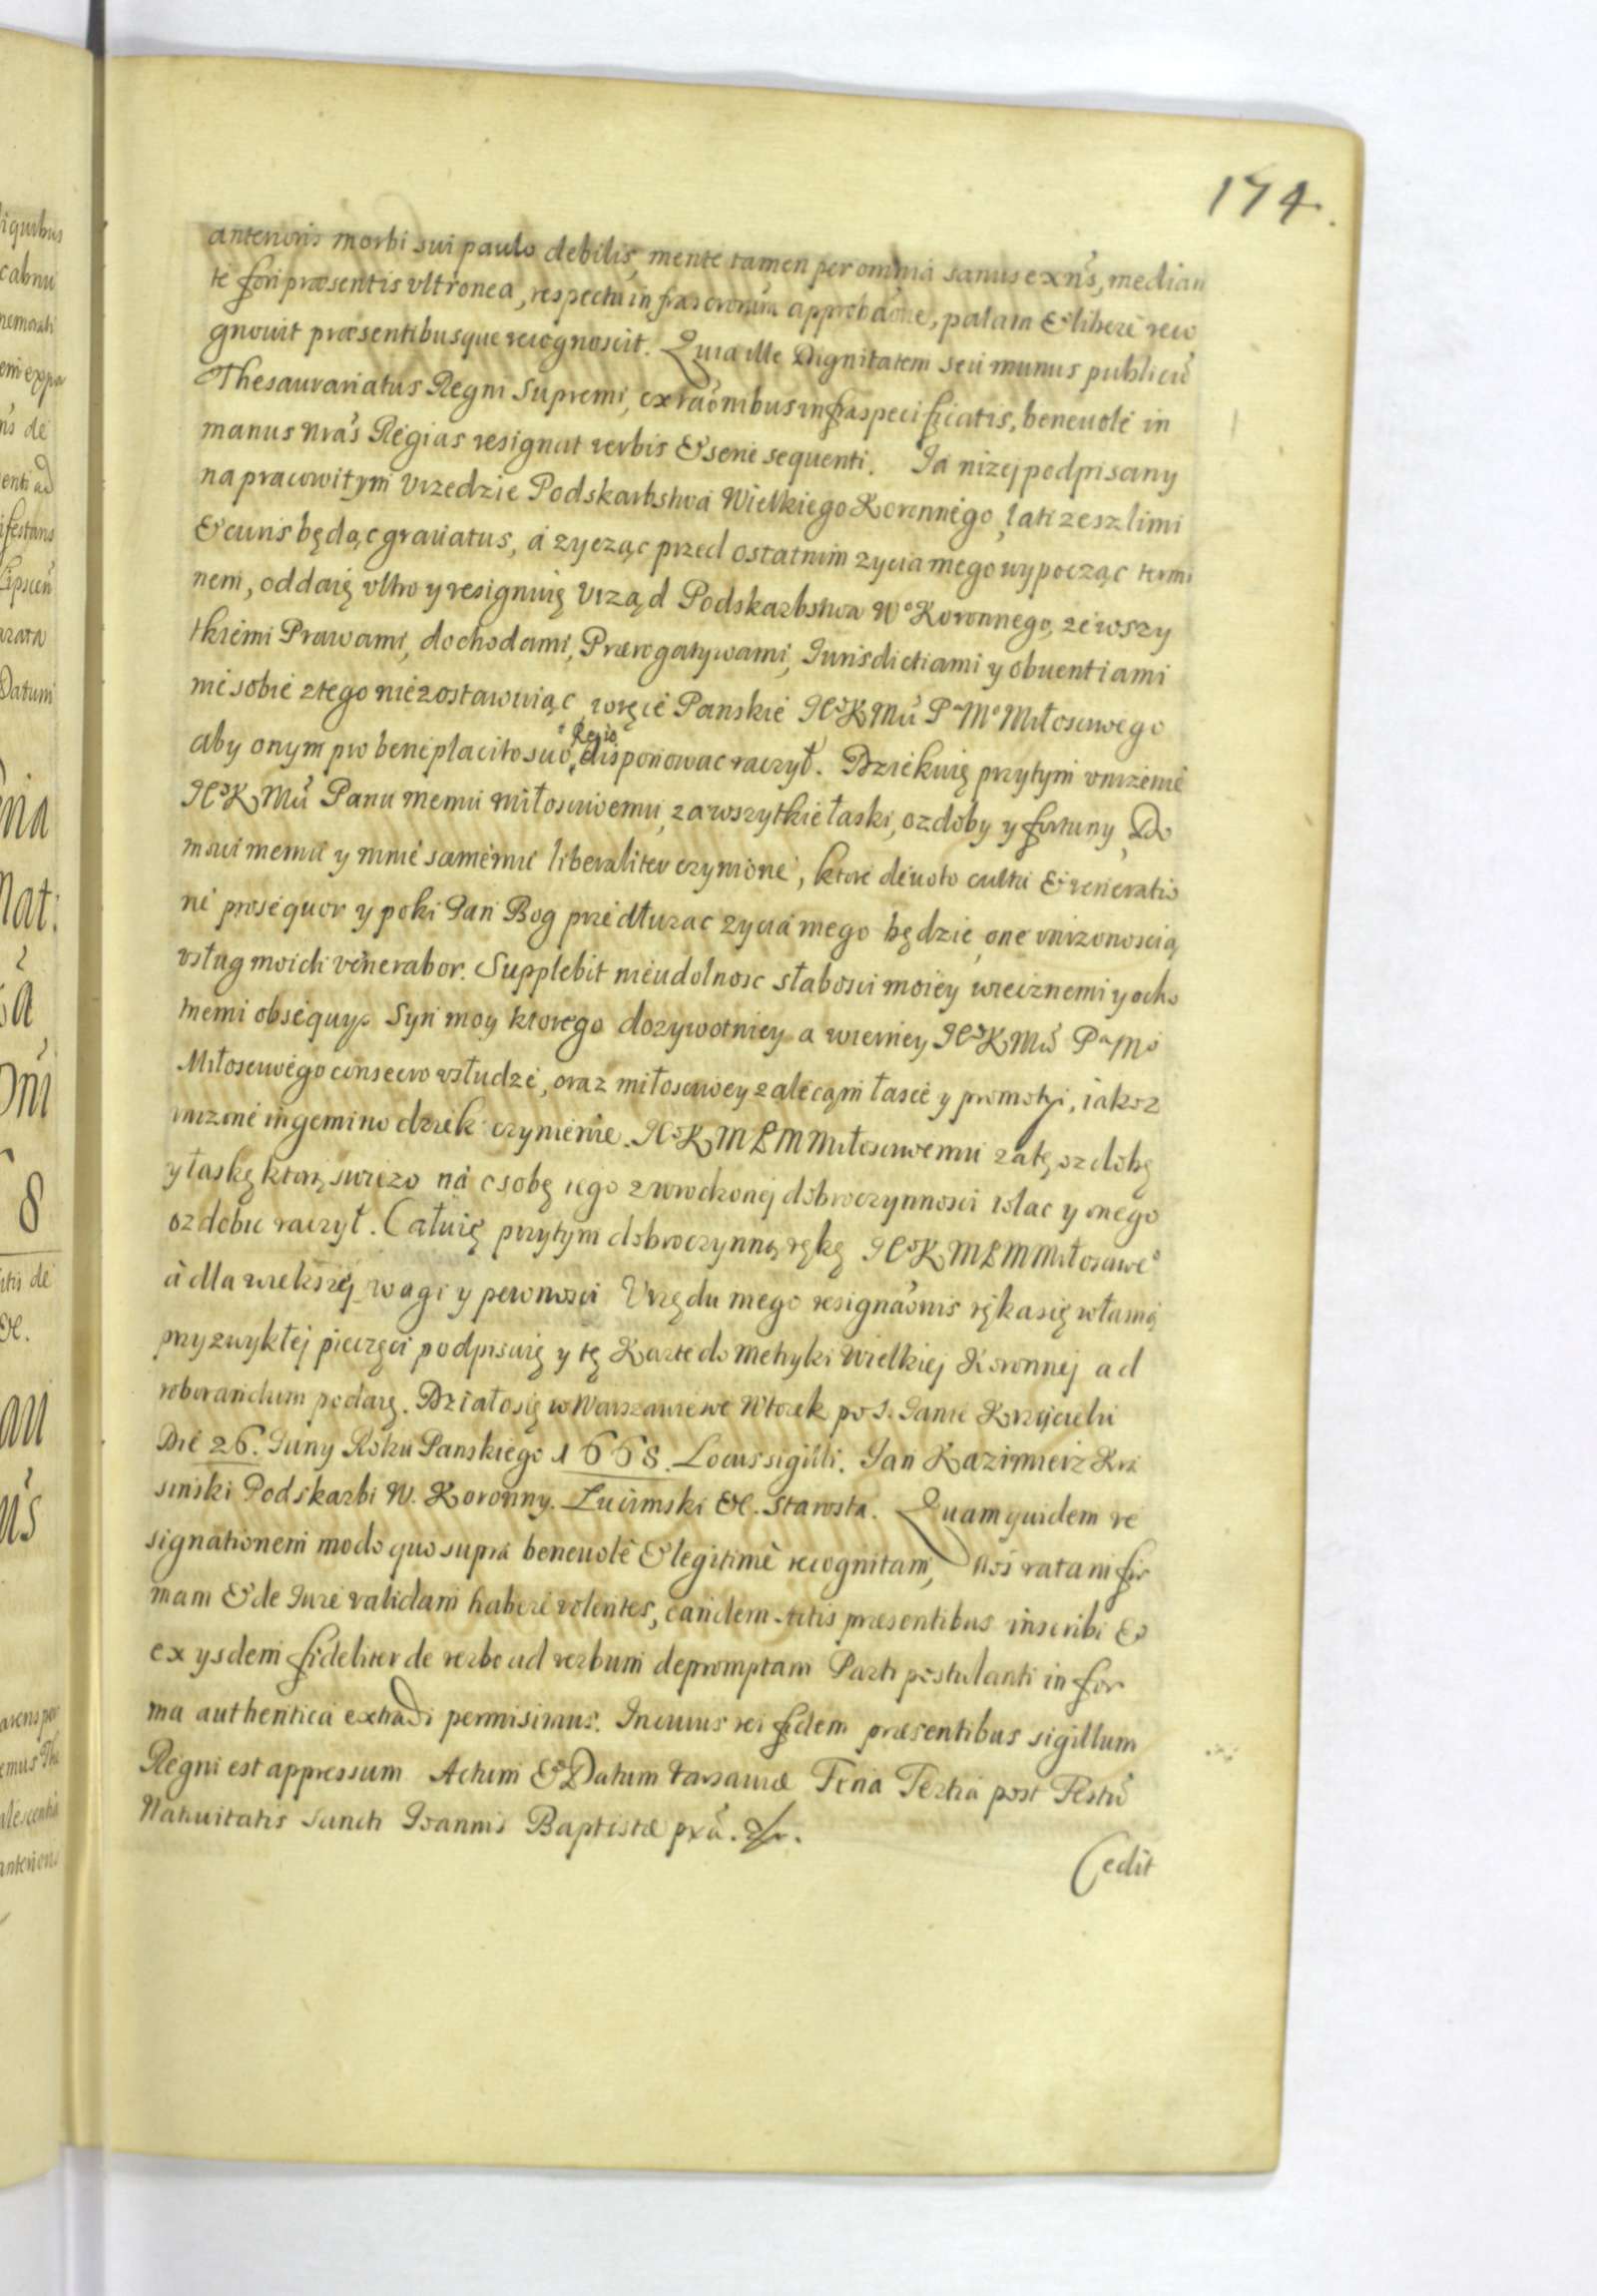 174.
anterioris morbi sui paulo debilis, mente tamen per omnia sanus exñs, median
te fori præsentis vltronea, respectu infrascriptorum approbãone, palam & liberè reco
gnouit præsentibusque recognoscit. Quia ille Dignitatem seu munus publicũ
Thesaurariatus Regni Supremi, ex rãonibus infraspecificatis, beneuolè in
manus nrãs Regias resignat verbis & serie sequenti. Ia nizej podpisany
na pracowitym Vrzedzie Podskarbstwa Wielkiego Koronnego, laty zeszlimi
& curis będąc grauatus, a zycząc przed ostatnim zycia mego wypocząc termi
nem, oddaię vltro y resignuię Vrząd Podskarbstwa Wº Koronnego, ze wszy
tkiemi Prawami, dochodami, Prærogatywami, Iurisdictiami y obuentiami
nic sobie z tego nie zostawuiąc, w ręce Panskie IºKMũ PªMº Miłosciwego
aby onym pro beneplacito suo Regio disponowac raczył. Dziekuię przytym vnizenie
IºKMũ Panu memu miłosciwemu, za wszytkie łaski, ozdoby y fortuny, Do
mowi memu y mnie samemu liberaliter czynione, ktore deuoto cultu & veneratio
ne prosequor y poki Pan Bog przedłuzac zycia mego będzie, one vnizonoscią
vsług moich venerabor. Supplebit nieudolnosc słabosci moiey wiecznemi y ocho
tnemi obsequys Syn moy ktorego dozywotniey a wierney IºKMũ PªMº
Miłosciwego consecro vsłudze, oraz miłosciwey zalecam łasce y promotyi, iakoz
vnizone ingemino dziek czynienie IºKMPMMiłosciwemu za tę ozdobę
y łaskę ktorą swiezo na osobę iego z wrodzonej dobroczynnosci wlac y onego
ozdobic raczył. Całuię przytym dobroczynną rękę IºKMPMMiłosciweº
a dla wiekszej wagi y pewnosci Vrzędu mego resignãonis ręką się własną
przy zwykłej pieczęci podpisuię y tę Karte do Metryki Wielkiej Koronnej ad
roborandum podaię. Działo się w Warszawie we Wtorek po S. Janie Krzcicielu
Die 26. Iuny Roku Panskiego 1668. Locus sigilli. Jan Kazimierz Kra
sinski Podskarbi W. Koronny. Łucimski &c. Starosta. Quam quidem re
signationem modo quo supra beneuolè & legitimè recognitam, Nos ratam fir
mam & de Iure validam habere volentes, eandem Actis præsentibus inscribi &
ex ysdem fideliter de verbo ad verbum depromptam Parti postulanti in for
ma authentica extradi permisimus. In cuius rei fidem præsentibus sigillum
Regni est appressum. Actum & Datum Varsauiæ Feria Tertia post Festũ
Natiuitatis Sancti Ioannis Baptistæ pxã. &c.
Cedit